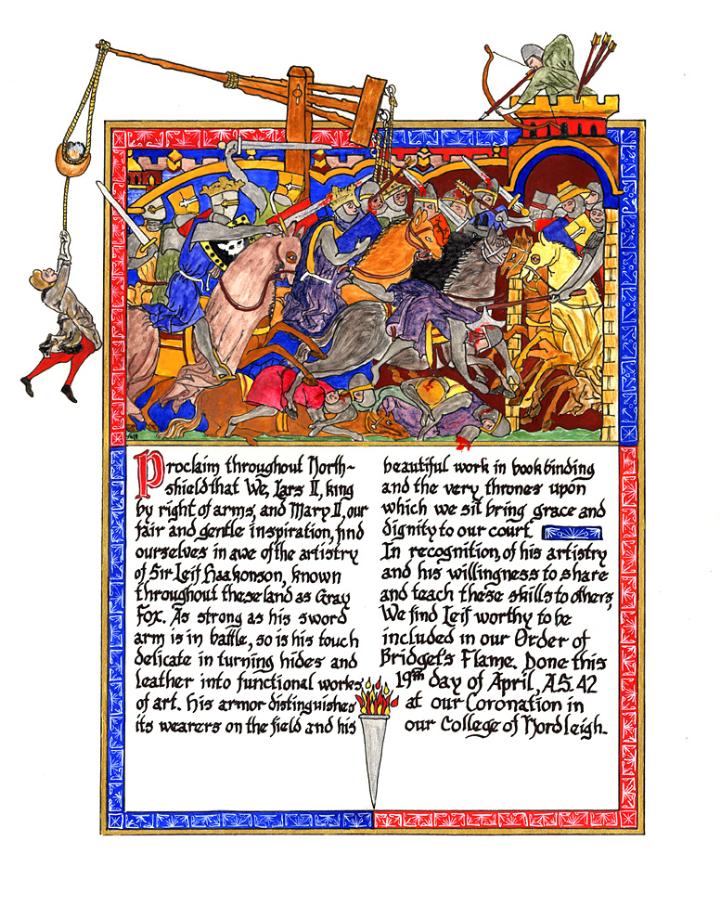 Proclaim throughout North-
shield that We, Lars II, king
by right of arms, and Mary II, our
fair and gentle inspiration, find
ourselves in awe of the artistry
of Sir Leif Haakonson, known
throughout these land as Gray
Fox. As strong as his sword
arm is in battle, so is his touch
delicate in turning hides and
leather into functional works
of art. His armor distinguishes
its wearers on the field and his
beautiful work in bookbinding
and the very thrones upon
which we sit bring grace and
dignity to our court.
In recognition of his artistry
and his willingness to share
and teach these skills to others,
We find Leif worthy to be
included in our Order of
Bridget's Flame. Done this
19th day of April, A.S. 42
at our Coronation in
our College of Nordleigh.